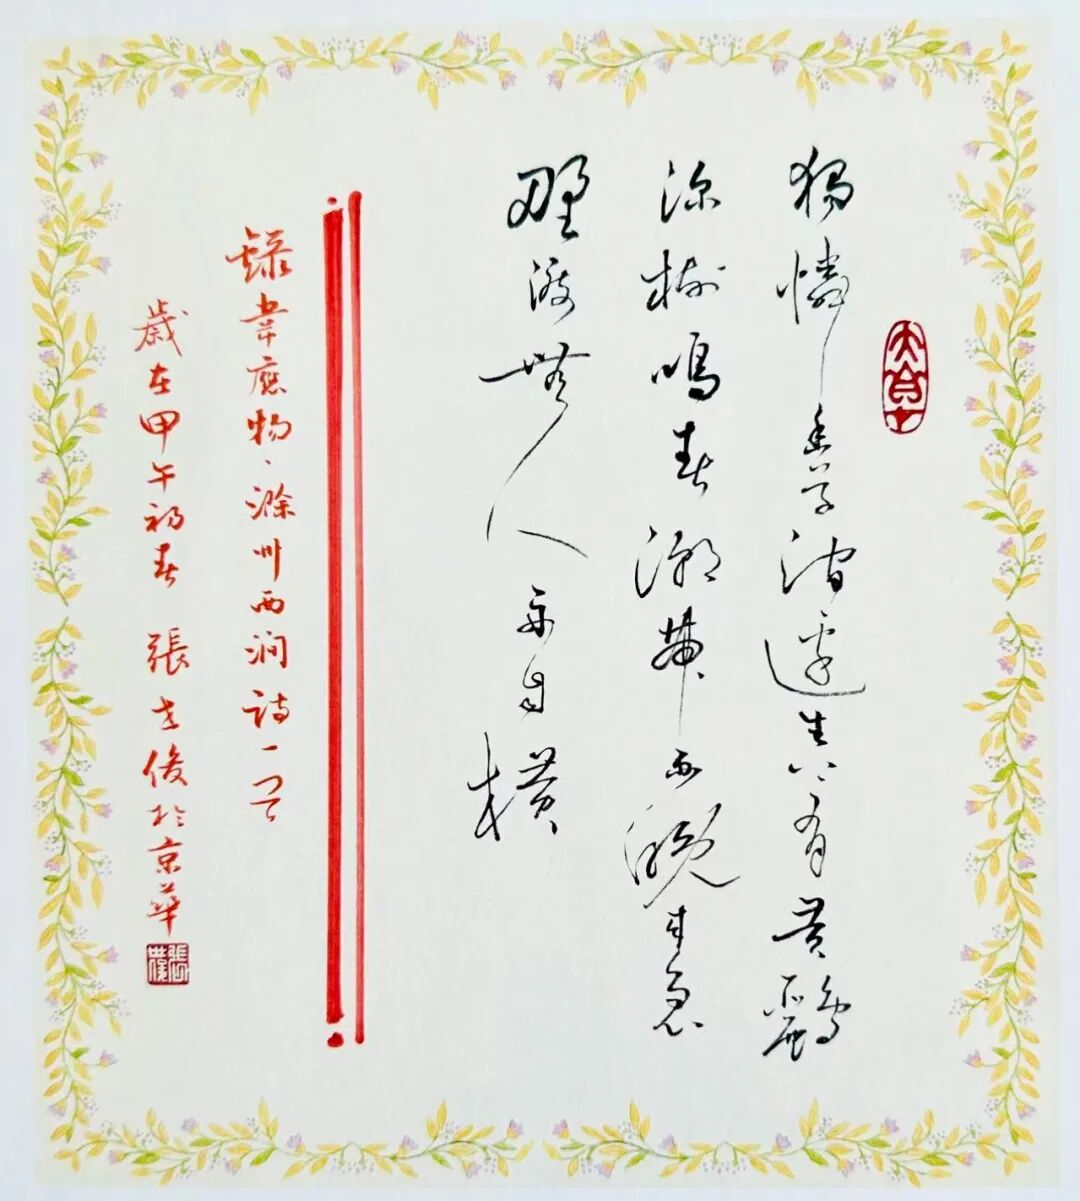 獨憐幽草澗邊生上有黃鸝
深樹鳴春潮帶雨晚來急
野渡無人舟自橫
錄韋應物、滁州西澗詩一首
歲在甲午初春 張世俊於京華